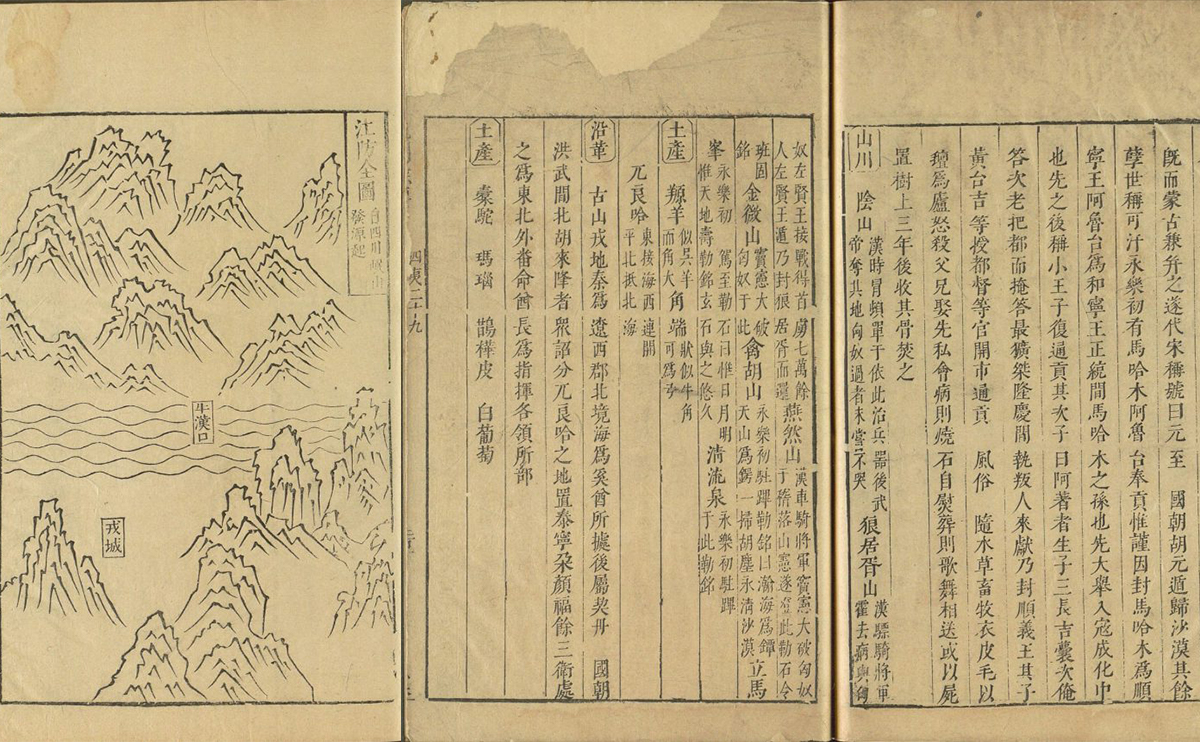 既而蒙古兼并之遂代宋稱號曰元至　國朝胡元遁歸沙漠其餘
孽世稱可汗永樂初有馬哈木阿魯台奉貢惟謹因封馬哈木爲順
寧王阿魯台爲和寧王正統間馬哈木之孫也先大舉入寇成化中
也先之後稱小王子復通貢其次子曰阿著者生子三長吉囊次俺
答次老把都而掩答最獷桀隆慶間執叛人來獻乃封順義王其子
黃台吉等授都督等官開市通貢　風俗　隨水草畜牧衣皮毛以
氊爲廬怒殺父兄娶先私會病則燒石自熨葬則歌舞相送或以屍
置樹上三年後收其骨焚之
山川　陰山　漢時冒頓單于依此治兵器後武帝奪其地匈奴過者未嘗不哭　狼居胥山　漢驃騎將軍霍去病與匈
奴左賢王接戰得首虜七萬餘人左賢王遁乃封狼居胥而還　燕然山　漢車騎將軍竇憲大破匈奴于稽落山憲遂登此勒石令
班固銘　金微山　竇憲大破匈奴于此　禽胡山　永樂初駐蹕勒銘曰瀚海爲鐔天山爲鍔一掃胡塵永清沙漠　立馬
峯　永樂初　駕至勒石曰惟日月明惟天地壽勒銘玄石與之悠久　清流泉　永樂初駐蹕于此勒銘
土產　羱羊　似吳羊而角大　角端　狀似牛角可爲弓
兀良哈　東接海西連開平北抵北海
沿革　古山戎地秦爲遼西郡北境海爲奚酋所據後屬契丹　國朝
洪武間北胡來降者衆詔分兀良哈之地置泰寧朶顏福餘三衛處
之爲東北外番命酋長爲指揮各領所部
土產　橐駝　瑪瑙　鵲樺皮　白葡萄
四夷二十九
江防全圖
自四川岷山
發源起
牛漢口
戎城